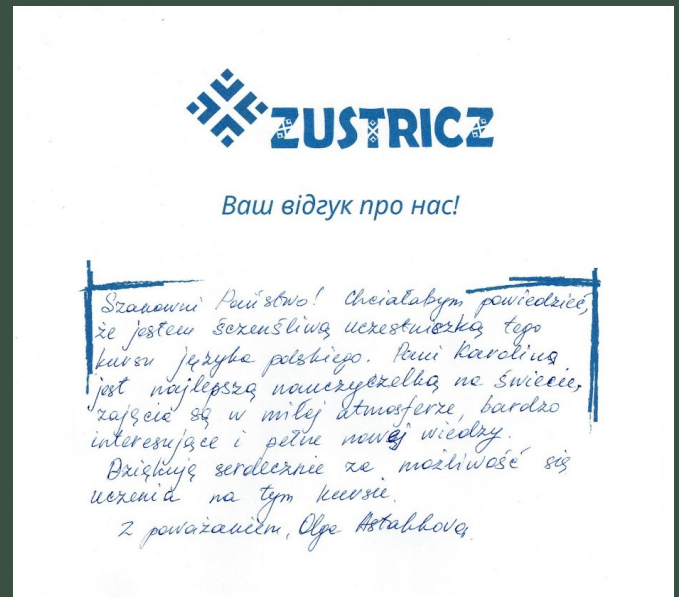 ZUSTRICZ
Ваш відгук про нас!
Szanowni Państwo! Chciałabym powiedzieć,
że jestem szczenśliwą uczestniszką tego
kursu języka polskiego. Pani Karolina
jest najlepszą nauczyczelką na świecie,
zajęcia są w miłej atmosferze, bardzo
interesujące i pełne nowej wiedzy.
Dziękuję serdecznie za możliwość się
uczenia na tym kursie.
Z poważaniem, Olga Astakhova